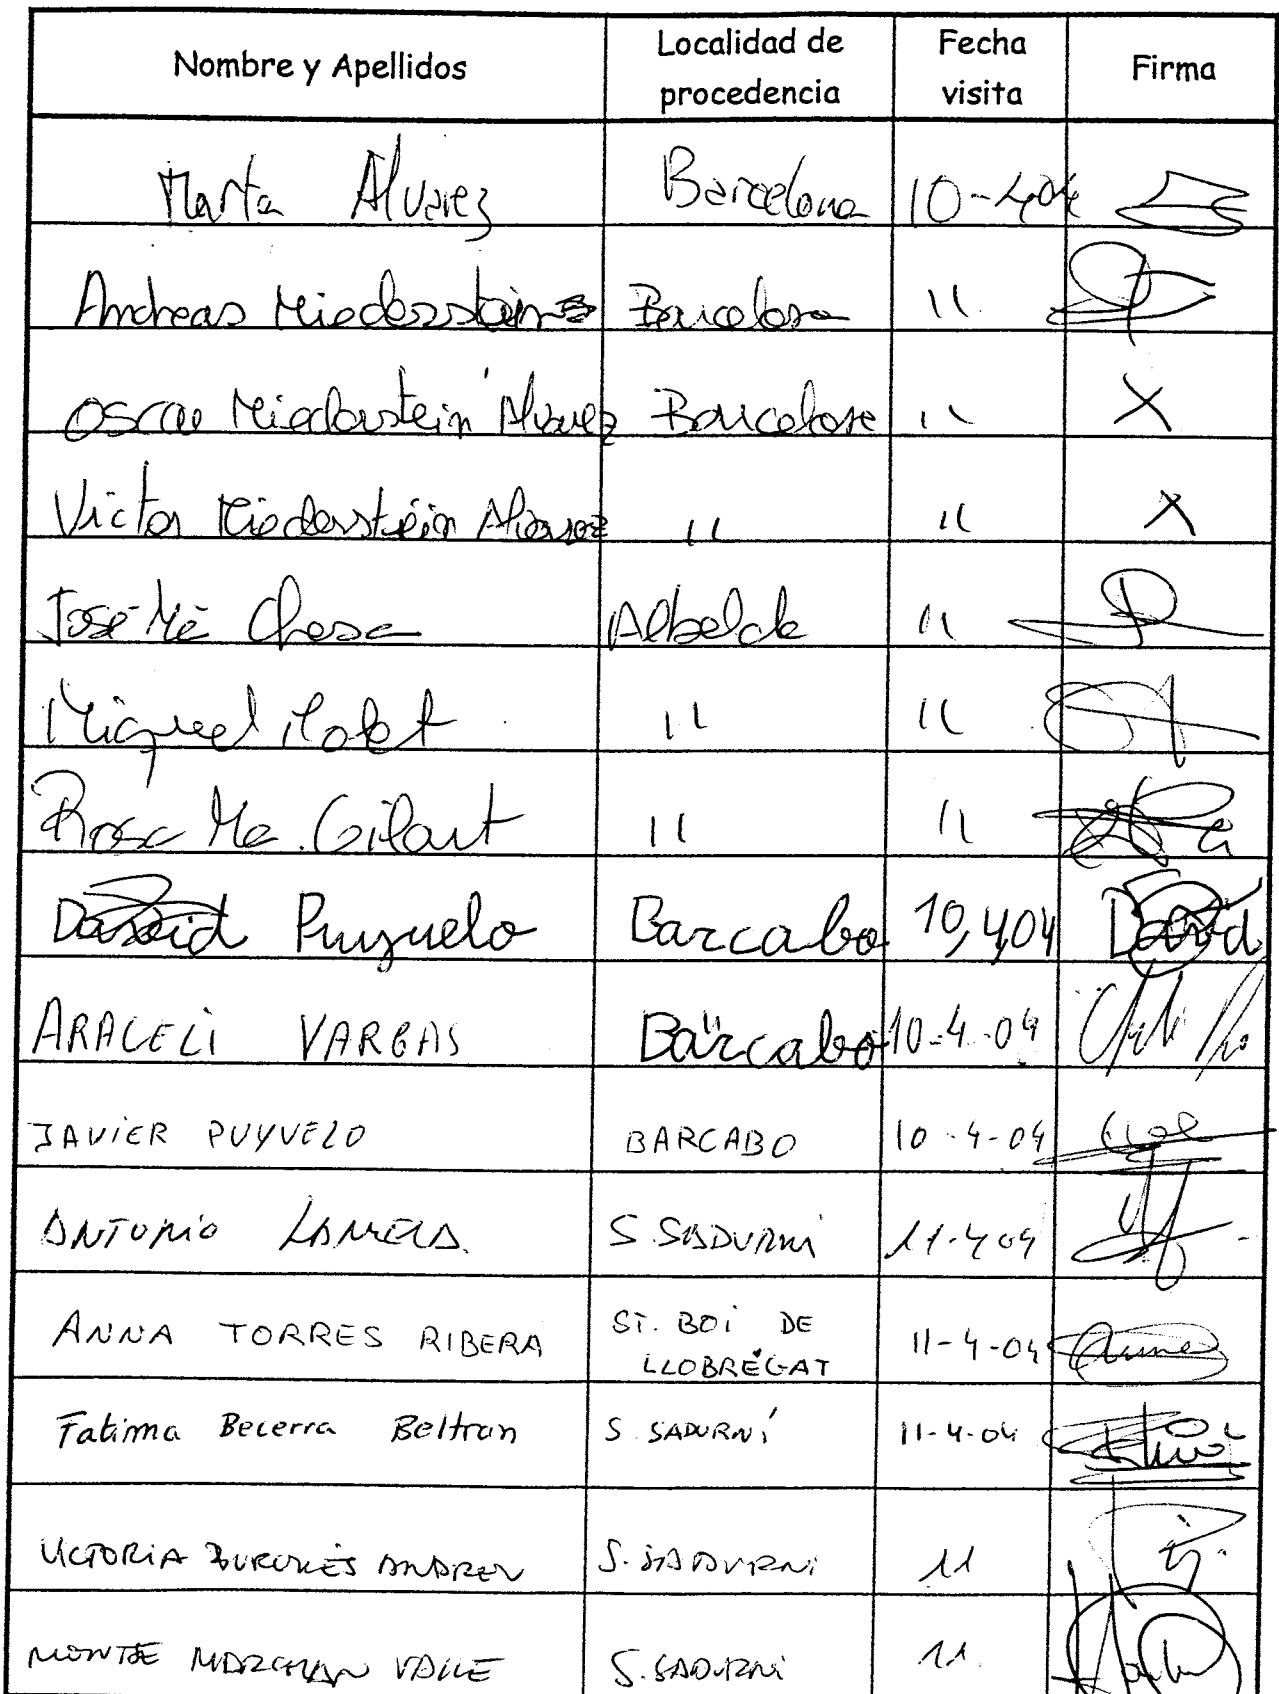 Nombre y Apellidos Localidad de procedencia Fecha visita Firma
Marta Alvarez Barcelona 10-4-04
Andreas Miederstein Barcelona "
Oscar Miederstein Alvarez Barcelona " X
Victor Miederstein Alvarez " " X
José Mª Chesa Albelda "
Miguel " "
Rosa Mª Gilart " "
David Puyuelo Barcabo 10,4,04 David
ARACELI VARGAS Barcabo 10-4-04
JAVIER PUYUELO BARCABO 10-4-04
ANTONIO S. SADURNI 11-4-04
ANNA TORRES RIBERA ST. BOI DE LLOBREGAT 11-4-04
Fatima Becerra Beltran S. SADURNÍ 11-4-04
VICTORIA ANDREU S. SADURNI 11
MONTSE MARCHAN VALLE S. SADURNI 11